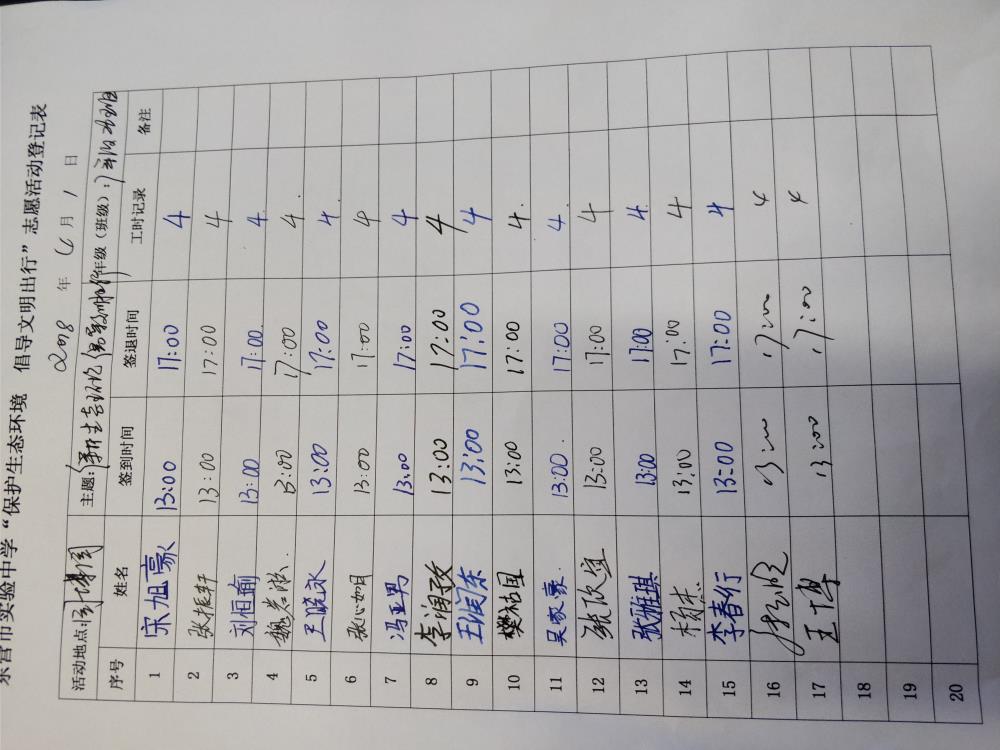 东营市实验中学“保护生态环境 倡导文明出行”志愿活动登记表
2018 年 6 月 1 日
活动地点: 主题: 年级（班级）:
序号 姓名 签到时间 签退时间 工时记录 备注
1 宋旭豪 13:00 17:00 4
2 张振轩 13:00 17:00 4
3 刘恒瑜 13:00 17:00 4
4 魏 13:00 17:00 4
5 王晓冰 13:00 17:00 4
6 张心如 13:00 17:00 4
7 冯亚男 13:00 17:00 4
8 李润政 13:00 17:00 4
9 王润东 13:00 17:00 4
10 樊祜国 13:00 17:00 4
11 吴家豪 13:00 17:00 4
12 张欣宜 13:00 17:00 4
13 张雅琪 13:00 17:00 4
14 杨杰 13:00 17:00 4
15 李春行 13:00 17:00 4
16 13:00 17:00 4
17 王博 13:00 17:00 4
18
19
20